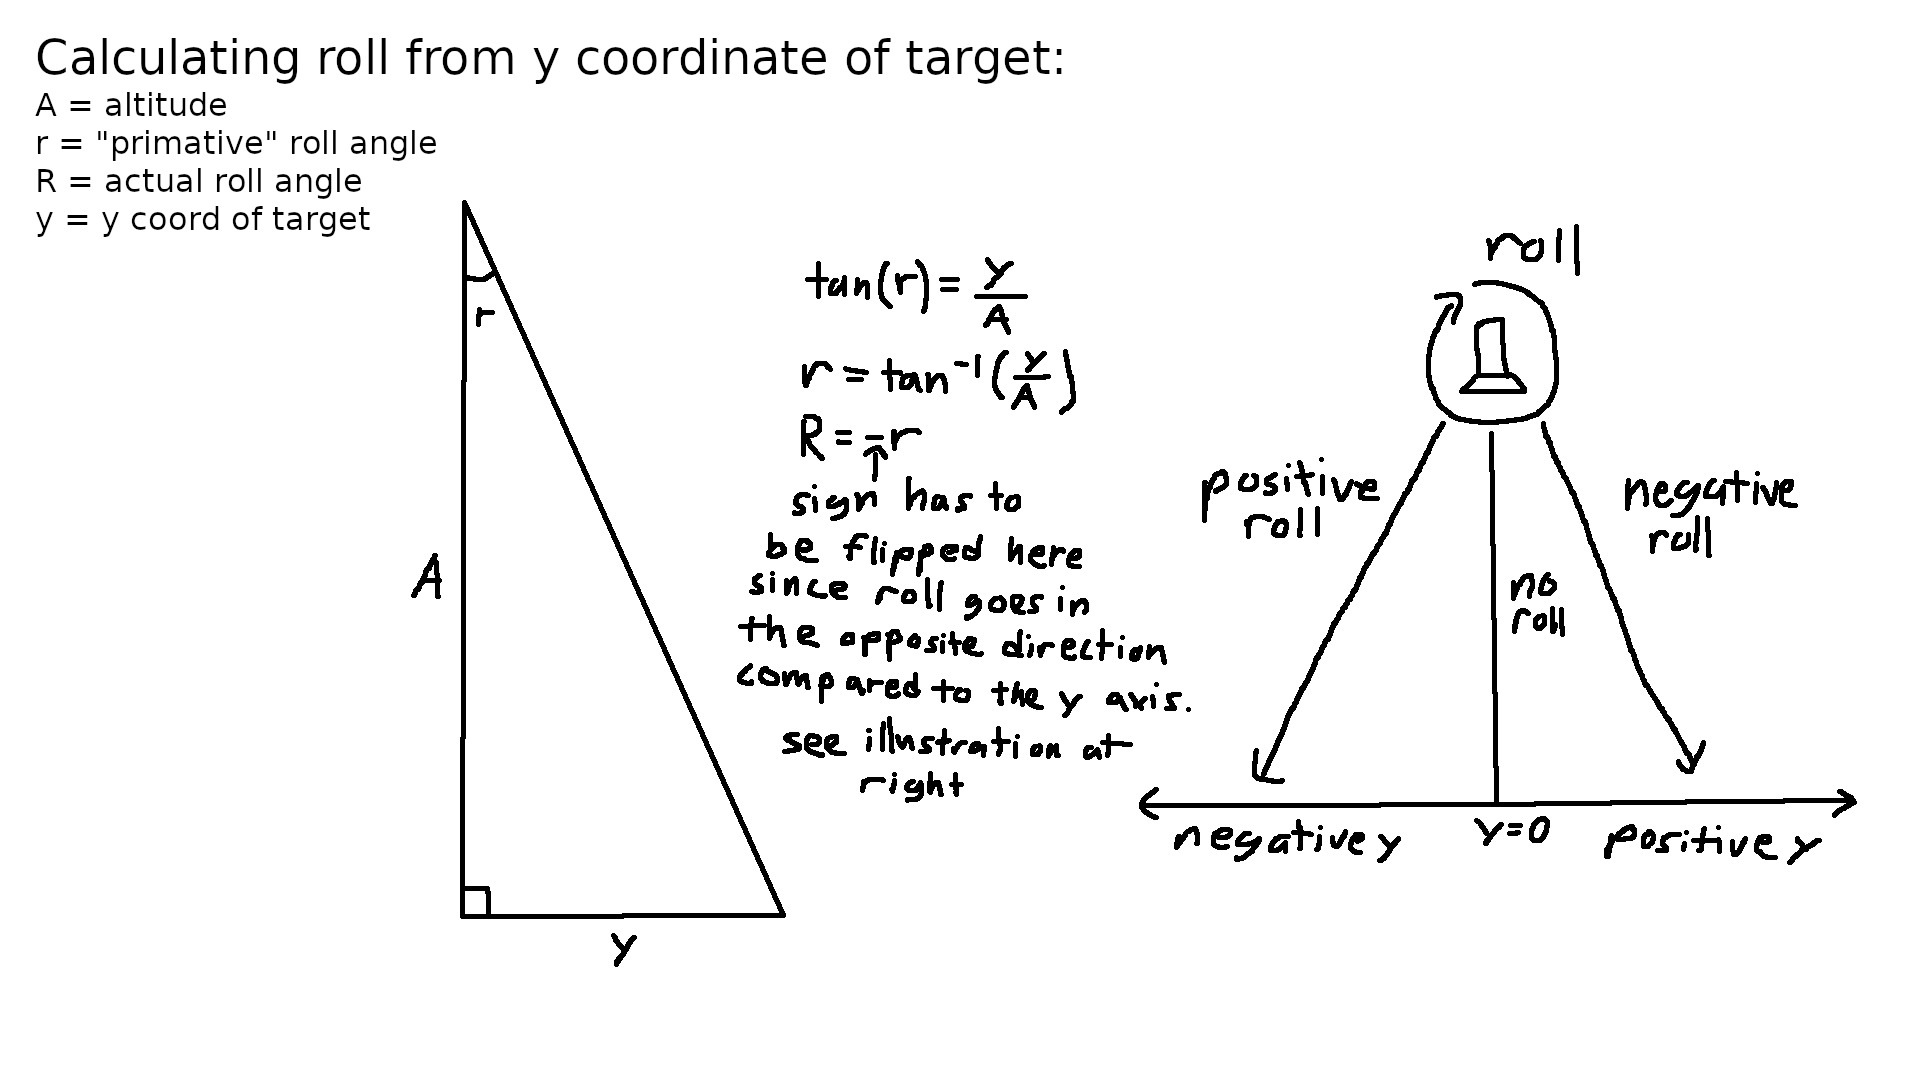 Calculating roll from y coordinate of target:
A = altitude
r = "primative" roll angle
R = actual roll angle
y = y coord of target
r
A
y
tan(r) = y/A
r = tan⁻¹(y/A)
R = -r
↑
sign has to
be flipped here
since roll goes in
the opposite direction
compared to the y axis.
see illustration at
right
roll
positive
roll
negative
roll
no
roll
negative y
y=0
positive y